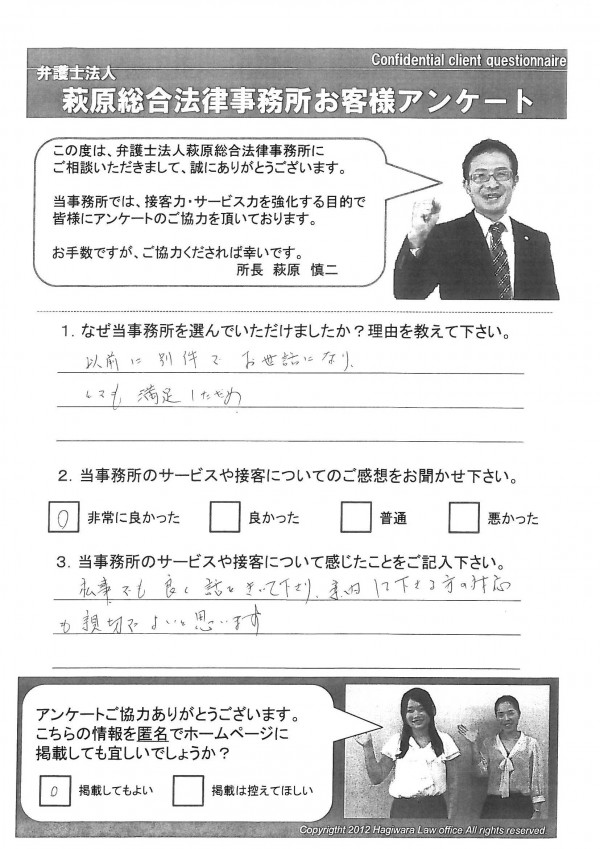 Confidential client questionnaire
弁護士法人
萩原総合法律事務所お客様アンケート
この度は、弁護士法人萩原総合法律事務所に
ご相談いただきまして、誠にありがとうございます。
当事務所では、接客力・サービス力を強化する目的で
皆様にアンケートのご協力を頂いております。
お手数ですが、ご協力くだされば幸いです。
所長 萩原 慎二
1. なぜ当事務所を選んでいただけましたか？理由を教えて下さい。
以前に別件でお世話になり、
とても満足したため
2. 当事務所のサービスや接客についてのご感想をお聞かせ下さい。
○ 非常に良かった 良かった 普通 悪かった
3. 当事務所のサービスや接客について感じたことをご記入下さい。
私事でも良く話をきいて下さり、案内して下さる方の対応
も親切でよいと思います
アンケートご協力ありがとうございます。
こちらの情報を匿名でホームページに
掲載しても宜しいでしょうか？
○ 掲載してもよい 掲載は控えてほしい
Copyrigtht 2012 Hagiwara Law office.All rights reserved